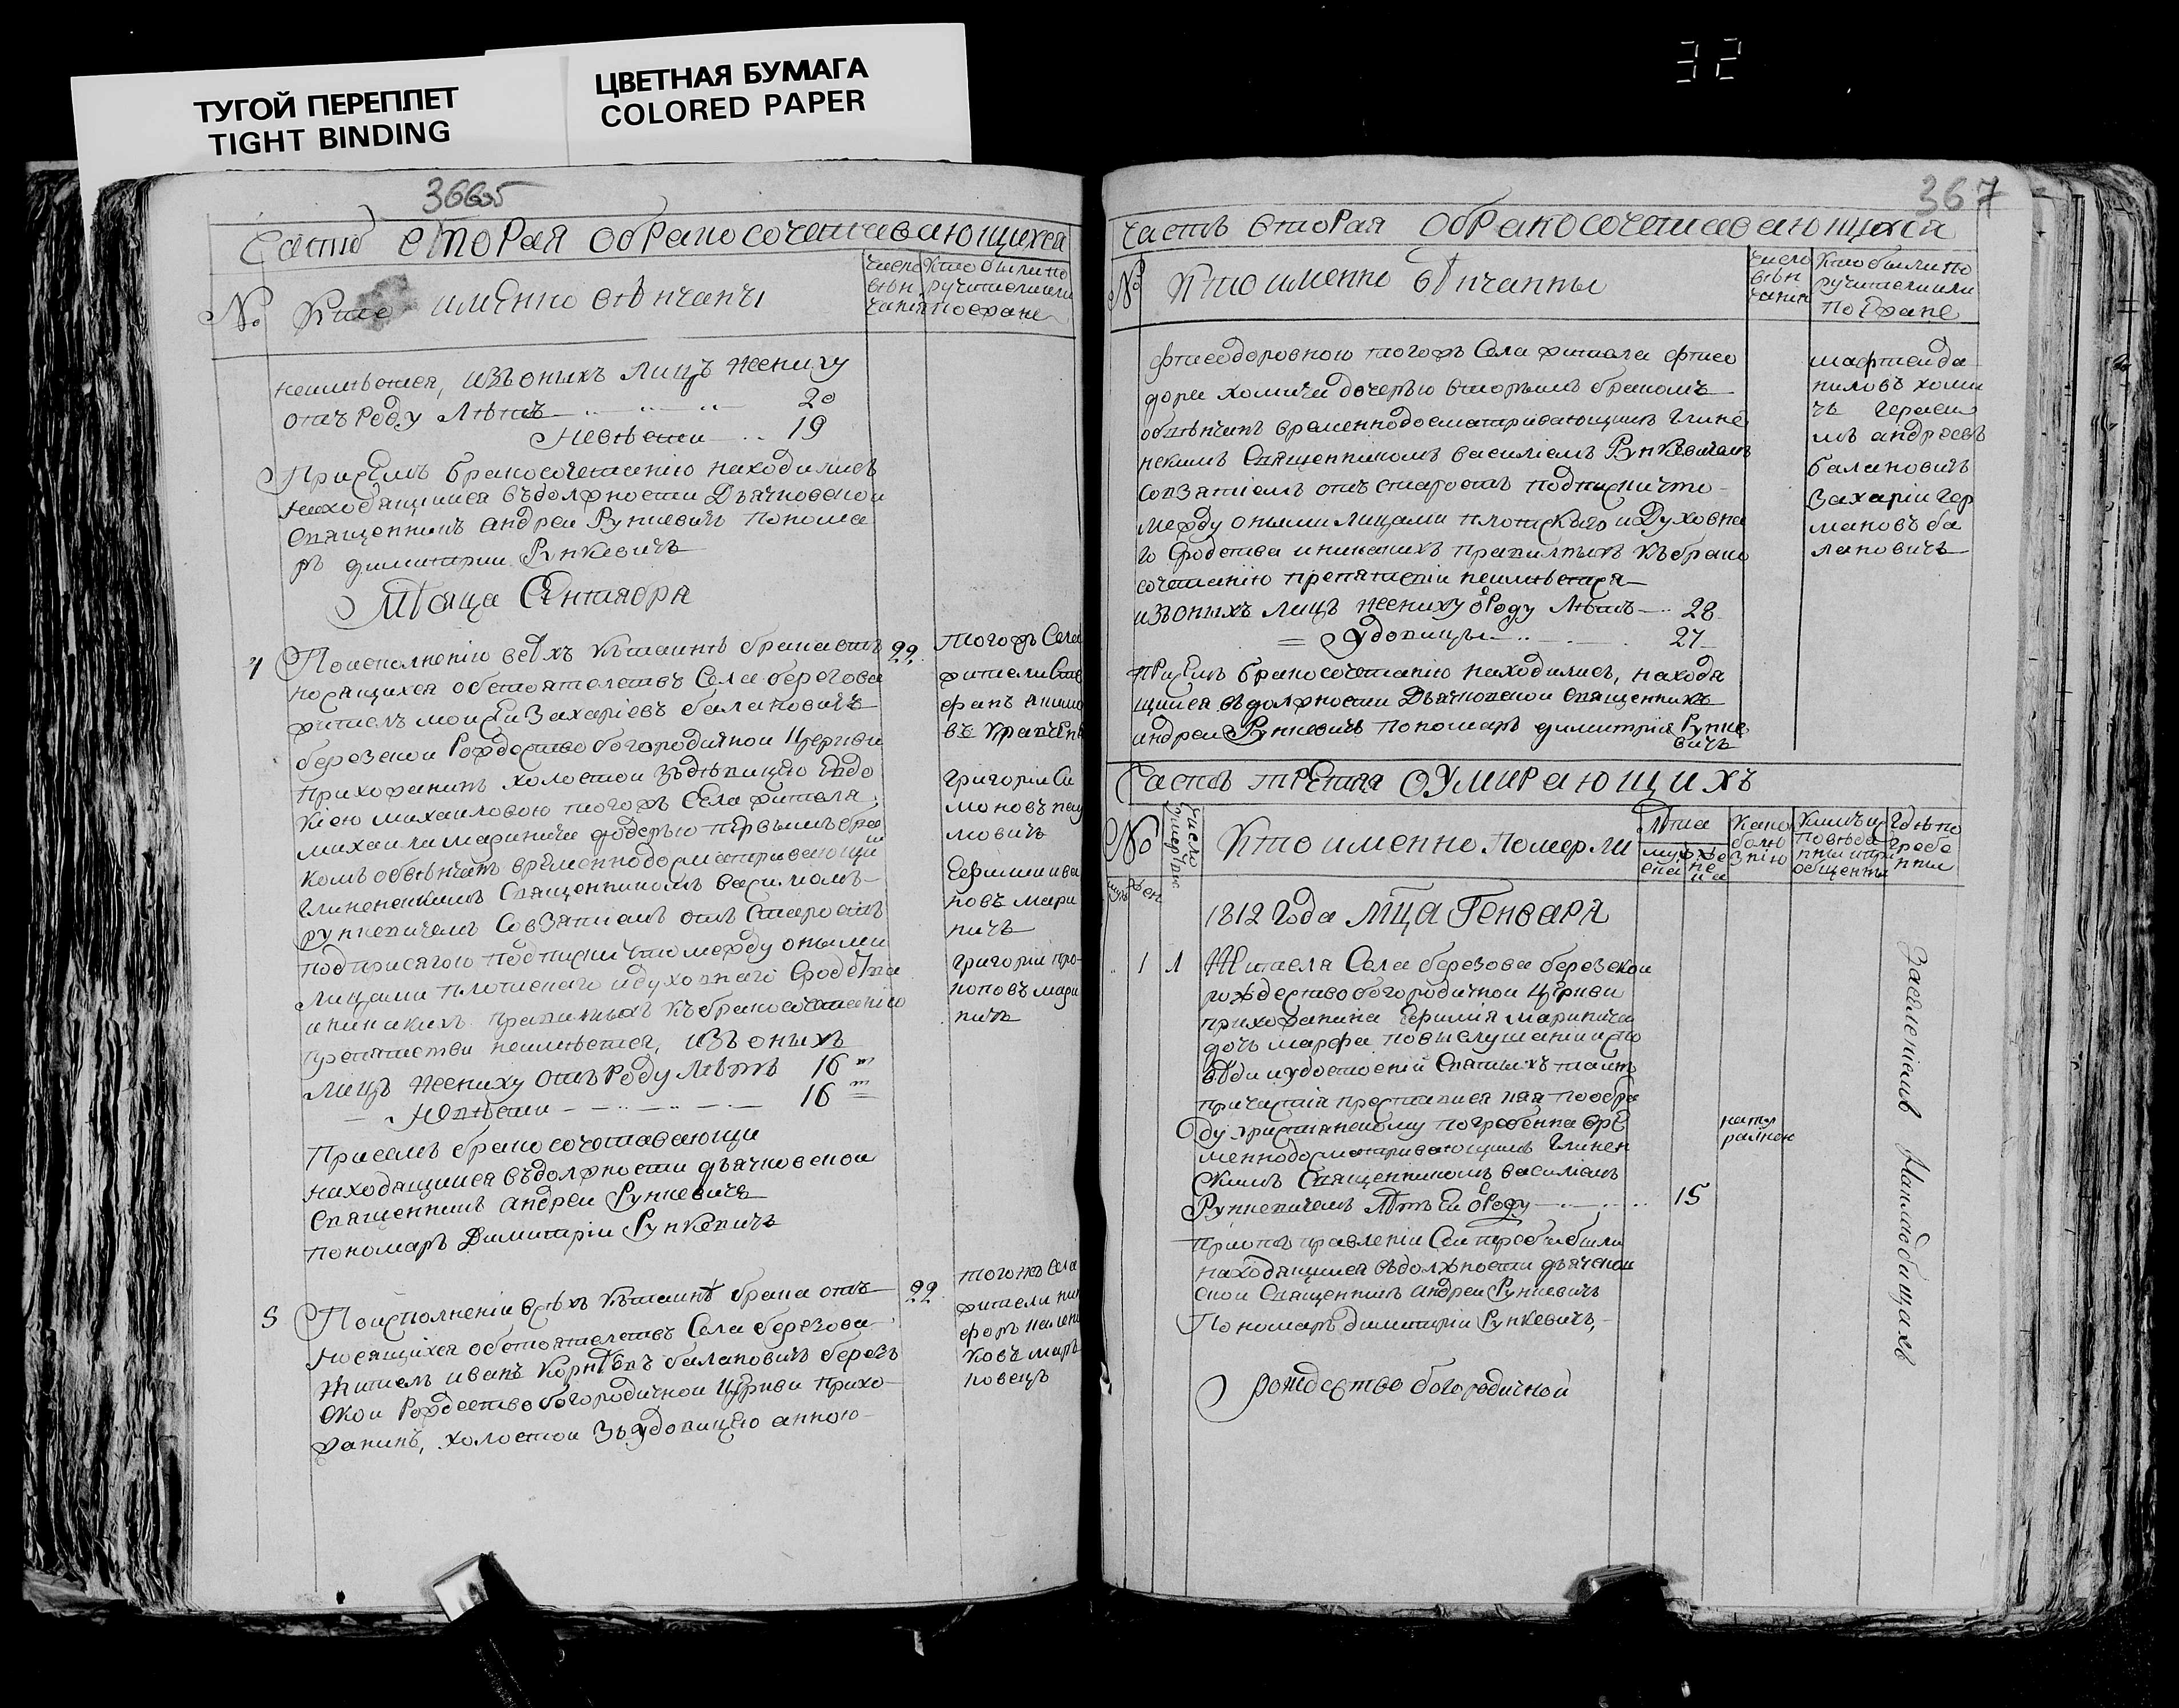 ТУГОЙ ПЕРЕПЛЕТ
TIGHT BINDING
ЦВЕТНАЯ БУМАГА
COLORED PAPER
32
366
Часть вторая обракосочетавающихся
№ Кто именно вѣнчаны
число вѣнчания
Кто были поручители или поезжане
неимѣется, изъ оныхъ лицъ жениху
отъ роду лѣтъ 20
Невѣсти 19
При семъ бракосочетанію находились
находящийся въ должности Дьячковской
Священникъ андреи Рункевичъ понома
ръ димитрии Рункевичъ
Мѣсяца Сентября
4 Поисполненію всѣхъ къ таинѣ брака отъ 22
носящихся обстоятелствъ Села березова
жителъ моисеи Захаріевъ балановичъ
березскои Рождество богородичнои Церкви
прихожанинъ холостои зъ дѣвицею Евдо
кіею михаиловою тогожъ Села жителя
михаила маринича дочерью первымъ бра
комъ обвѣнчанъ временнодосматривающи
глиненскимъ Священникомъ василиемъ
рункевичемъ Совзятиемъ отъ Старостъ
подприсягою подписки что между оными
лицами плотскаго и духовнаго Сродства
и никакихъ правилныхъ къ бракосочетанію
препятстви неимѣется, изъ оныхъ
лицъ жениху отъ роду лѣтъ 16
Невѣсти 16
При семъ бракосочетавающи
находящийся въ должности дьячковскои
Священникъ андреи Рункевичъ
пономаръ Димитріи Рункевичъ
тогожъ Села
жители Сте
фанъ
въ Кравчен
григоріи Си
моновъ нау
мовичъ
Ефимии ива
новъ мари
ничъ
григоріи про
коповъ мари
ничъ
5 Поисполненіи всѣхъ къ таинѣ брака отъ 22
носящихся обстоятелствъ Села березова
Жителъ иванъ Корнѣевъ балановичъ берез
скои Рождество богородичнои Церкви прихо
жанинъ, холостои зъ удовицею анною
тогожъ села
жители ни
форъ
ковъ мар
новецъ
367
часть вторая обракосочетавающихся
№ Кто именно вѣнчанны
число вѣнчания
Кто были поручители или поезжане
фтеодоровною тогожъ Села жителя фтео
дора хомича дочерью вторымъ бракомъ
обвѣнчанъ временнодосматривающимъ глине
нскимъ Священникомъ василіемъ Рункевичемъ
Совзятіемъ отъ старостъ подписки что
между оными лицами плотскаго и Духовна
го Сродства и никакихъ правилныхъ къ брако
сочетанію препятствіи неимѣется
изъ оныхъ лицъ жениху ѿ роду лѣтъ 28
Удовицы 27
При семъ бракосочетанію находились, находя
щийся въ должности Дьячковскои Священникъ
андреи Рункевичъ пономаръ димитрія Рунке
вичъ
мафтеи да
ниловъ хоми
чъ гераси
мъ андреевъ
балановичъ
Захаріи гер
мановъ ба
лановичъ
Часть третая оумирающихъ
№ Число умерших
Кто именно померли
Лѣта
мужеска женска
Какою болѣзнію
Кѣмъ исповѣданны и приобщенны
Гдѣ погребенны
муж жен
1812 года Мца Генваря
1 1 Жителя Села березова березскои
рождество богородичнои Церкви
прихожанина Ефимия маринича
дочь марфа повыслушании испо
вѣди и удостоений Святыхъ таинъ
причастія преставися кая по обря
ду христианскому погребенна вре
меннодосматривающимъ глинен
скимъ Священникомъ василіемъ
Рункевичемъ лѣтъ ей ѿ роду 15
натуралною
При отправленіи Сеи требы были
находящийся въ должности дьячков
скои Священникъ андреи Рункевичъ
Пономаръ димитріи Рункевичъ,
рождество богородичной
Заселеніемъ На кладбищахъ